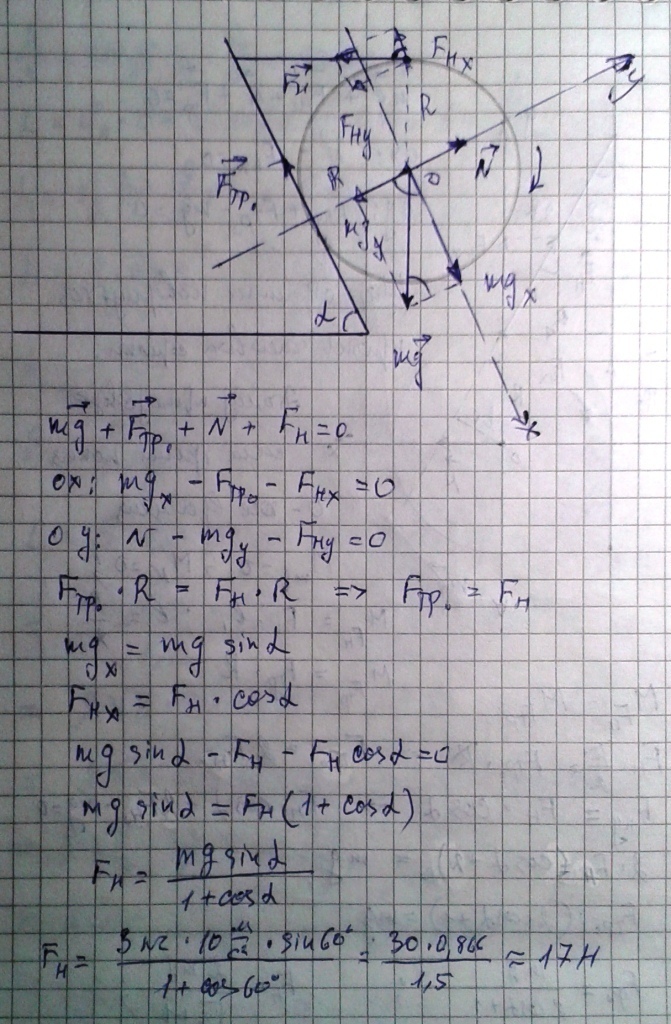 F⃗н Fнx y
R
Fнy
F⃗тр. R O N⃗
mgy
mgx
α
mg⃗
x
mg⃗ + F⃗тр. + N⃗ + Fн = 0
ox: mgx − Fтр. − Fнx = 0
oy: N − mgy − Fнy = 0
Fтр. · R = Fн · R => Fтр. = Fн
mgx = mg sinα
Fнx = Fн · cosα
mg sinα − Fн − Fн cosα = 0
mg sinα = Fн (1 + cosα)
Fн = mg sinα / 1 + cosα
Fн = 3 кг · 10 м/с² · sin60° / 1 + cos60° = 30 · 0,866 / 1,5 ≈ 17 Н